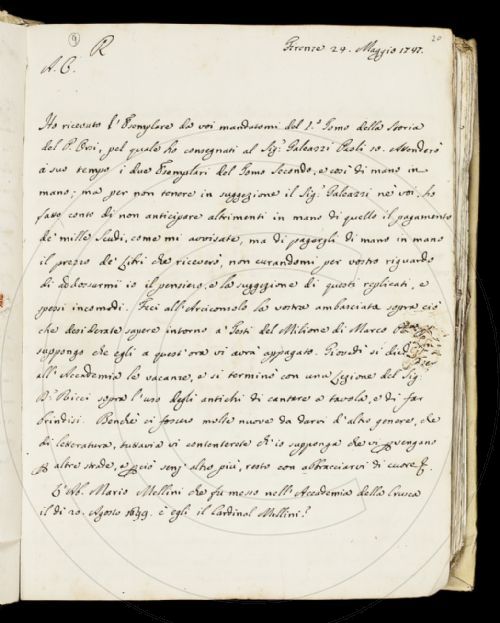 9 R 20
A. C. Firenze 24. Maggio 1747.
Ho ricevuto l'Esemplare da voi mandatomi del 1.º Tomo della Storia
del P. Orsi, pel quale ho consegnati al Sig.r Galeazzi Paoli 10. Attenderò
a suo tempo i due Esemplari del Tomo Secondo, e così di mano in
mano; ma per non tenere in suggezione il Sig.r Galeazzi ne voi, ho
fatto conto di non anticipare altrimenti in mano di quello il pagamento
de' mille Scudi, come mi avvisate, ma di pagargli di mano in mano
il prezzo de' Libri che riceverò, non curandomi per vostro riguardo
di addossarmi io il pensiero, e la suggezione di questi replicati, e
spessi incomodi. Feci all'Arciconsolo la vostra ambasciata sopra ciò
che desiderate sapere intorno a' Testi del Milione di Marco
suppongo che egli a quest'ora vi avrà appagato. Giovedì si
all'Accademia le vacanze, e si terminò con una Lezione del Sig.
Ricci sopra l'uso degli antichi di cantare a tavola, e di far
brindisi. Benché vi fossero molte nuove da darvi d'altro genere, che
di letteratura, tuttavia vi contenterete ch'io supponga che vi pervengano
per altre strade, e perciò senz'altro più, resto con abbracciarvi di cuore
L'Ab. Mario Mellini che fu messo nell'Accademia della Crusca
il dì 20. Agosto 1699. è egli il Cardinal Mellini?